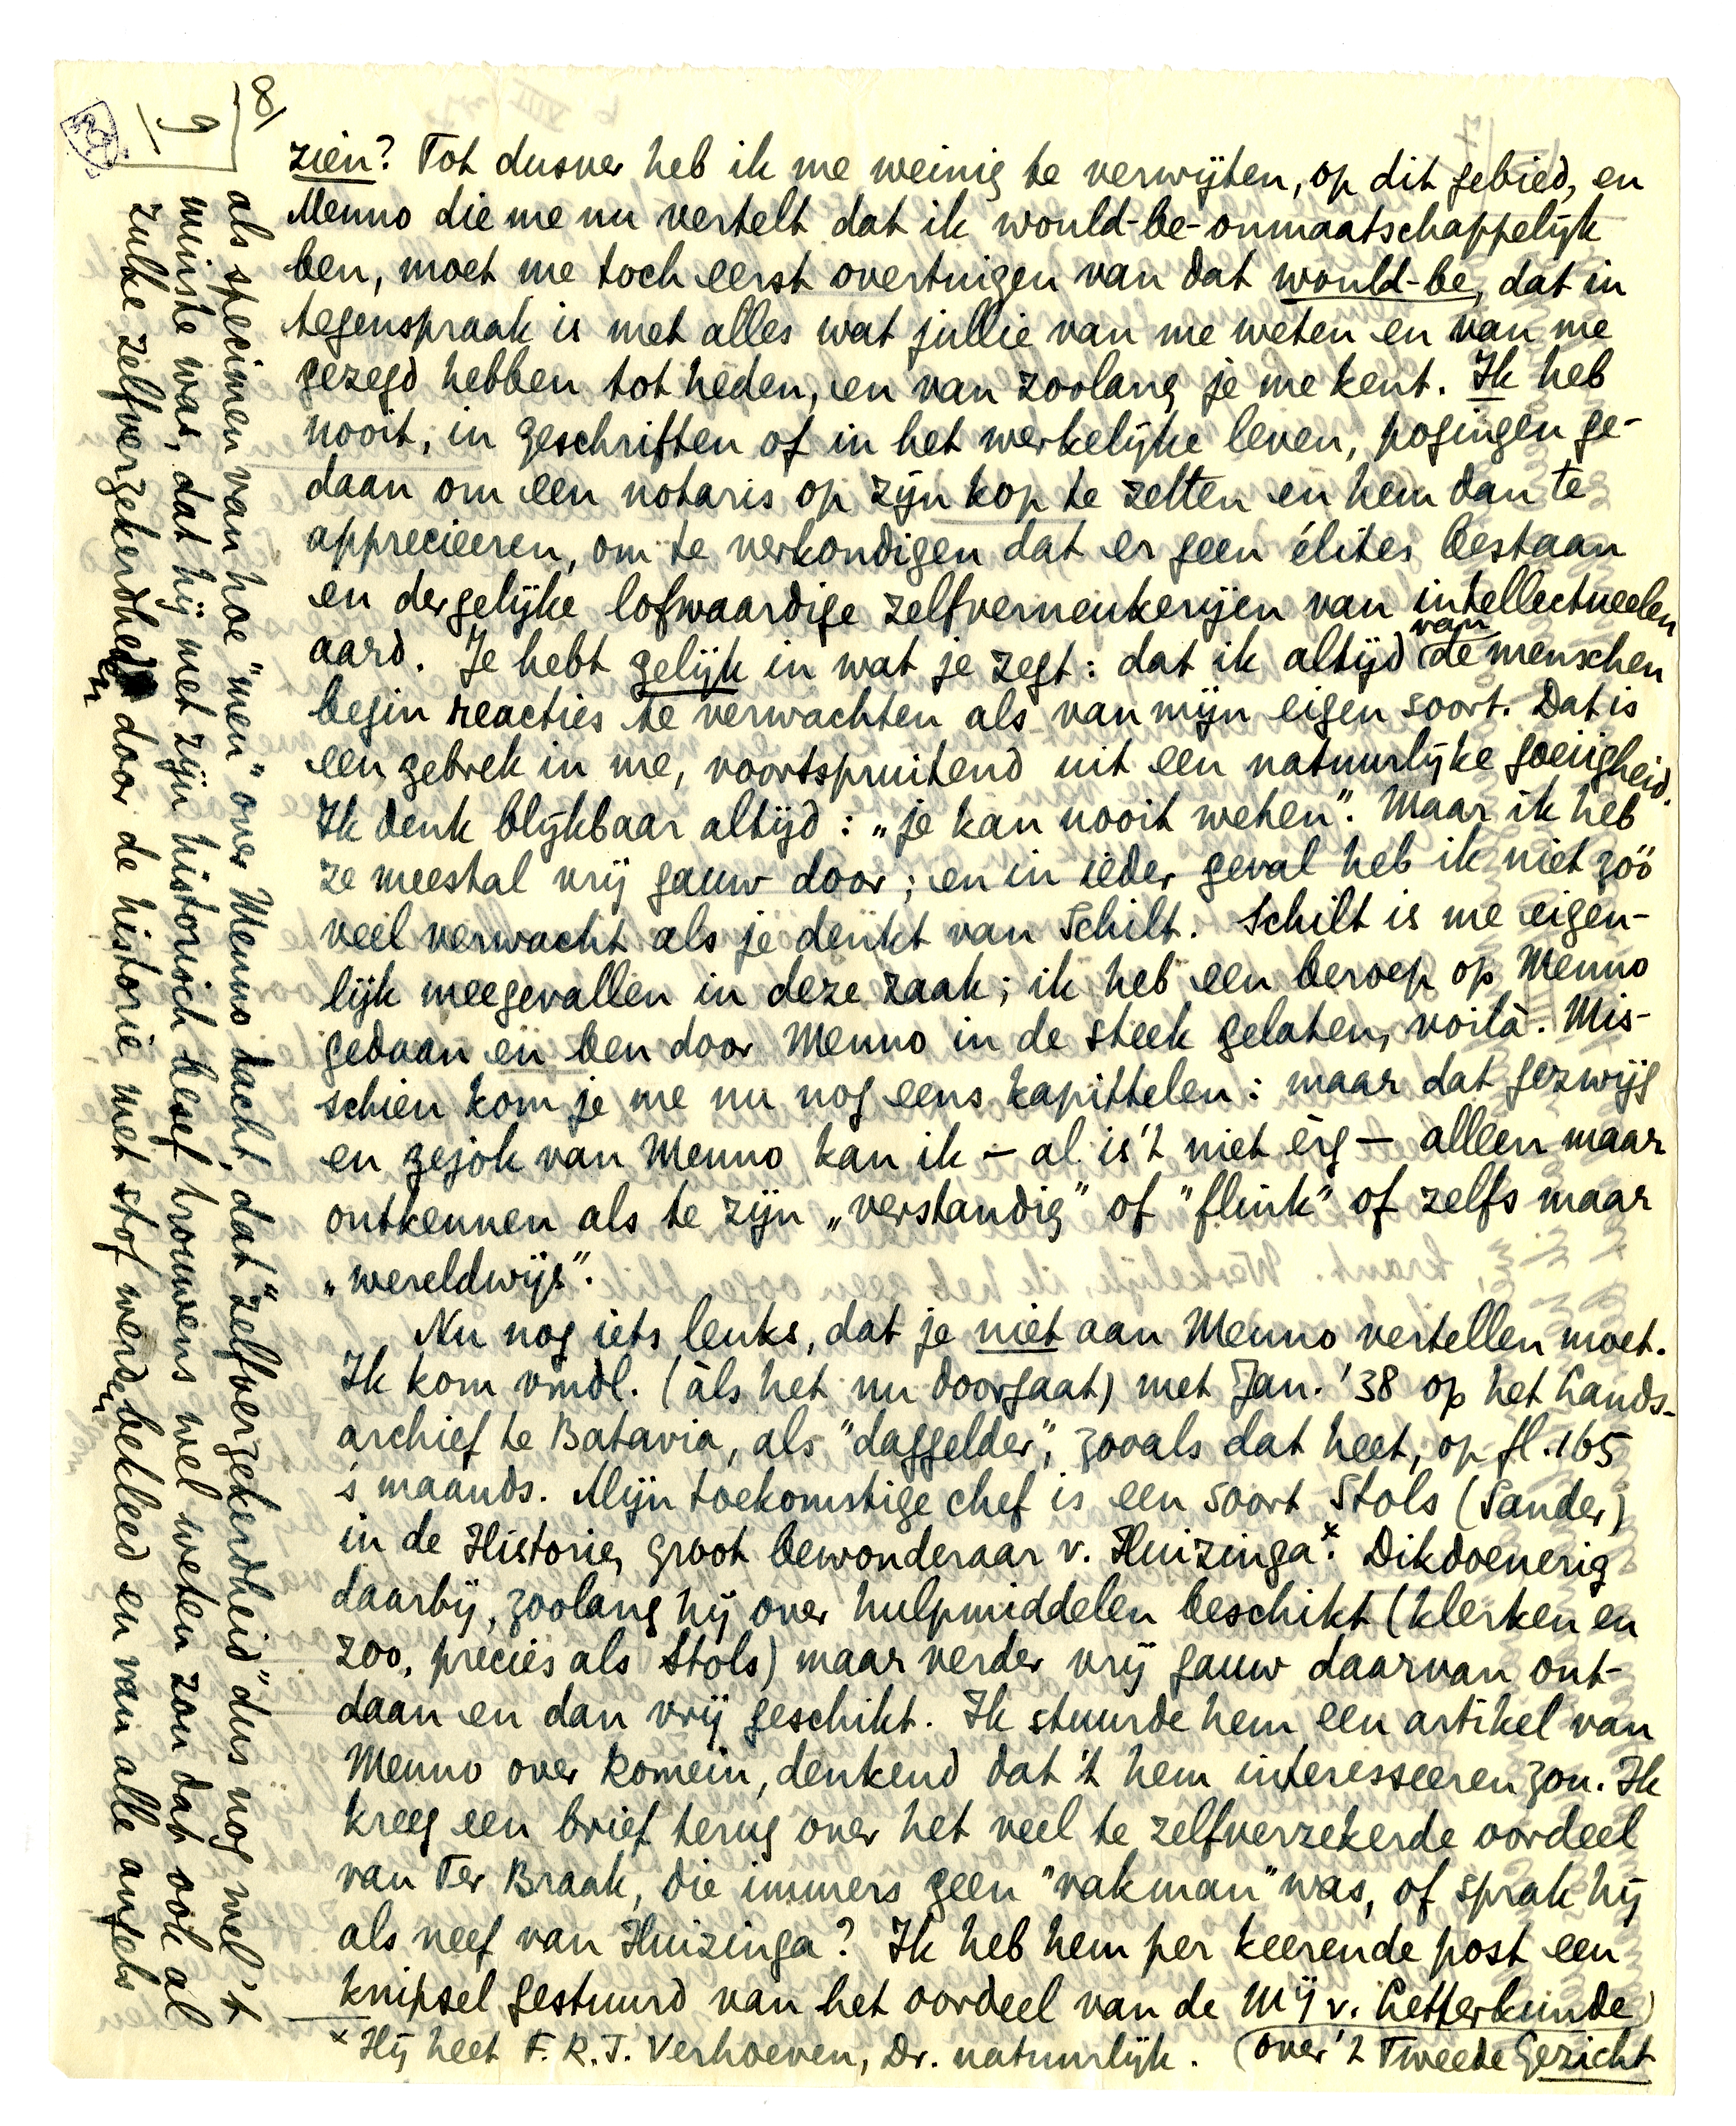 8/
9/
zien? Tot dusver heb ik me weinig te verwijten, op dit gebied, en
Menno die me nu vertelt dat ik would-be-onmaatschappelijk
ben, moet me toch eerst overtuigen van dat would-be, dat in
tegenspraak is met alles wat jullie van me weten en van me
gezegd hebben tot heden, en van zoolang je me kent. Ik heb
nooit, in geschriften of in het werkelijke leven, pogingen ge-
daan om een notaris op zijn kop te zetten en hem dan te
apprecieeren, om te verkondigen dat er geen élites bestaan
en dergelijke lofwaardige zelfverneukerijen van intellectueelen
aard. Je hebt gelijk in wat je zegt: dat ik altijd van de menschen
begin reacties te verwachten als van mijn eigen soort. Dat is
een gebrek in me, voortspruitend uit een natuurlijke goeiigheid.
Ik denk blijkbaar altijd: „je kan nooit weten”. Maar ik heb
ze meestal vrij gauw door; en in ieder geval heb ik niet zóó
veel verwacht als je denkt van Schilt. Schilt is me eigen-
lijk meegevallen in deze zaak; ik heb een beroep op Menno
gedaan en ben door Menno in de steek gelaten, voilà. Mis-
schien kom je me nu nog eens kapittelen: maar dat gezwijg
en gejok van Menno kan ik – al is 't niet èrg – alleen maar
ontkennen als te zijn „verstandig” of “flink” of zelfs maar
„wereldwijs”.
Nu nog iets leuks, dat je niet aan Menno vertellen moet.
Ik kom vmdl. (àls het nu doorgaat) met Jan. '38 op het Lands-
archief te Batavia, als “daggelder”, zooals dat heet, op fl. 165
's maands. Mijn toekomstige chef is een soort Stols (Sander)
in de Historie, groot bewonderaar v. Huizinga.x Dikdoenerig
daarbij, zoolang hij over hulpmiddelen beschikt (klerken en
zoo, precies als Stols) maar verder vrij gauw daarvan ont-
daan en dan vrij geschikt. Ik stuurde hem een artikel van
Menno over Romein, denkend dat 't hem interesseeren zou. Ik
kreeg een brief terug over het veel te zelfverzekerde oordeel
van Ter Braak, die immers geen “vakman” was, of sprak hij
als neef van Huizinga? Ik heb hem per keerende post een
knipsel gestuurd van het oordeel van de Mij v. Letterkunde
(over 't Tweede Gezicht
x Hij heet F.R.J. Verhoeven, Dr. natuurlijk.
als specimen van hoe “men” over Menno dacht, dat “zelfverzekerdheid” dus nog wel 't
minste was, dat hij met zijn historisch besef trouwens wel weten zou dat ook al
zulke zelfverzekerdheden door de historie met stof werden bekleed en van alle angels